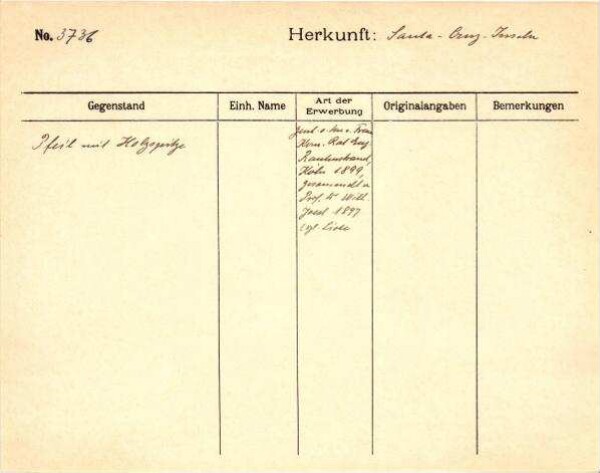 No. 3736
Herkunft: Santa-Cruz-Inseln
Gegenstand
Einh. Name
Art der Erwerbung
Originalangaben
Bemerkungen
Pfeil mit Holzspitze
Frau
Kom. Rat Eug.
Rautenstrauch,
Köln 1899,
gesammelt v.
Prof. Dr Wilh.
Joest 1897
Liste